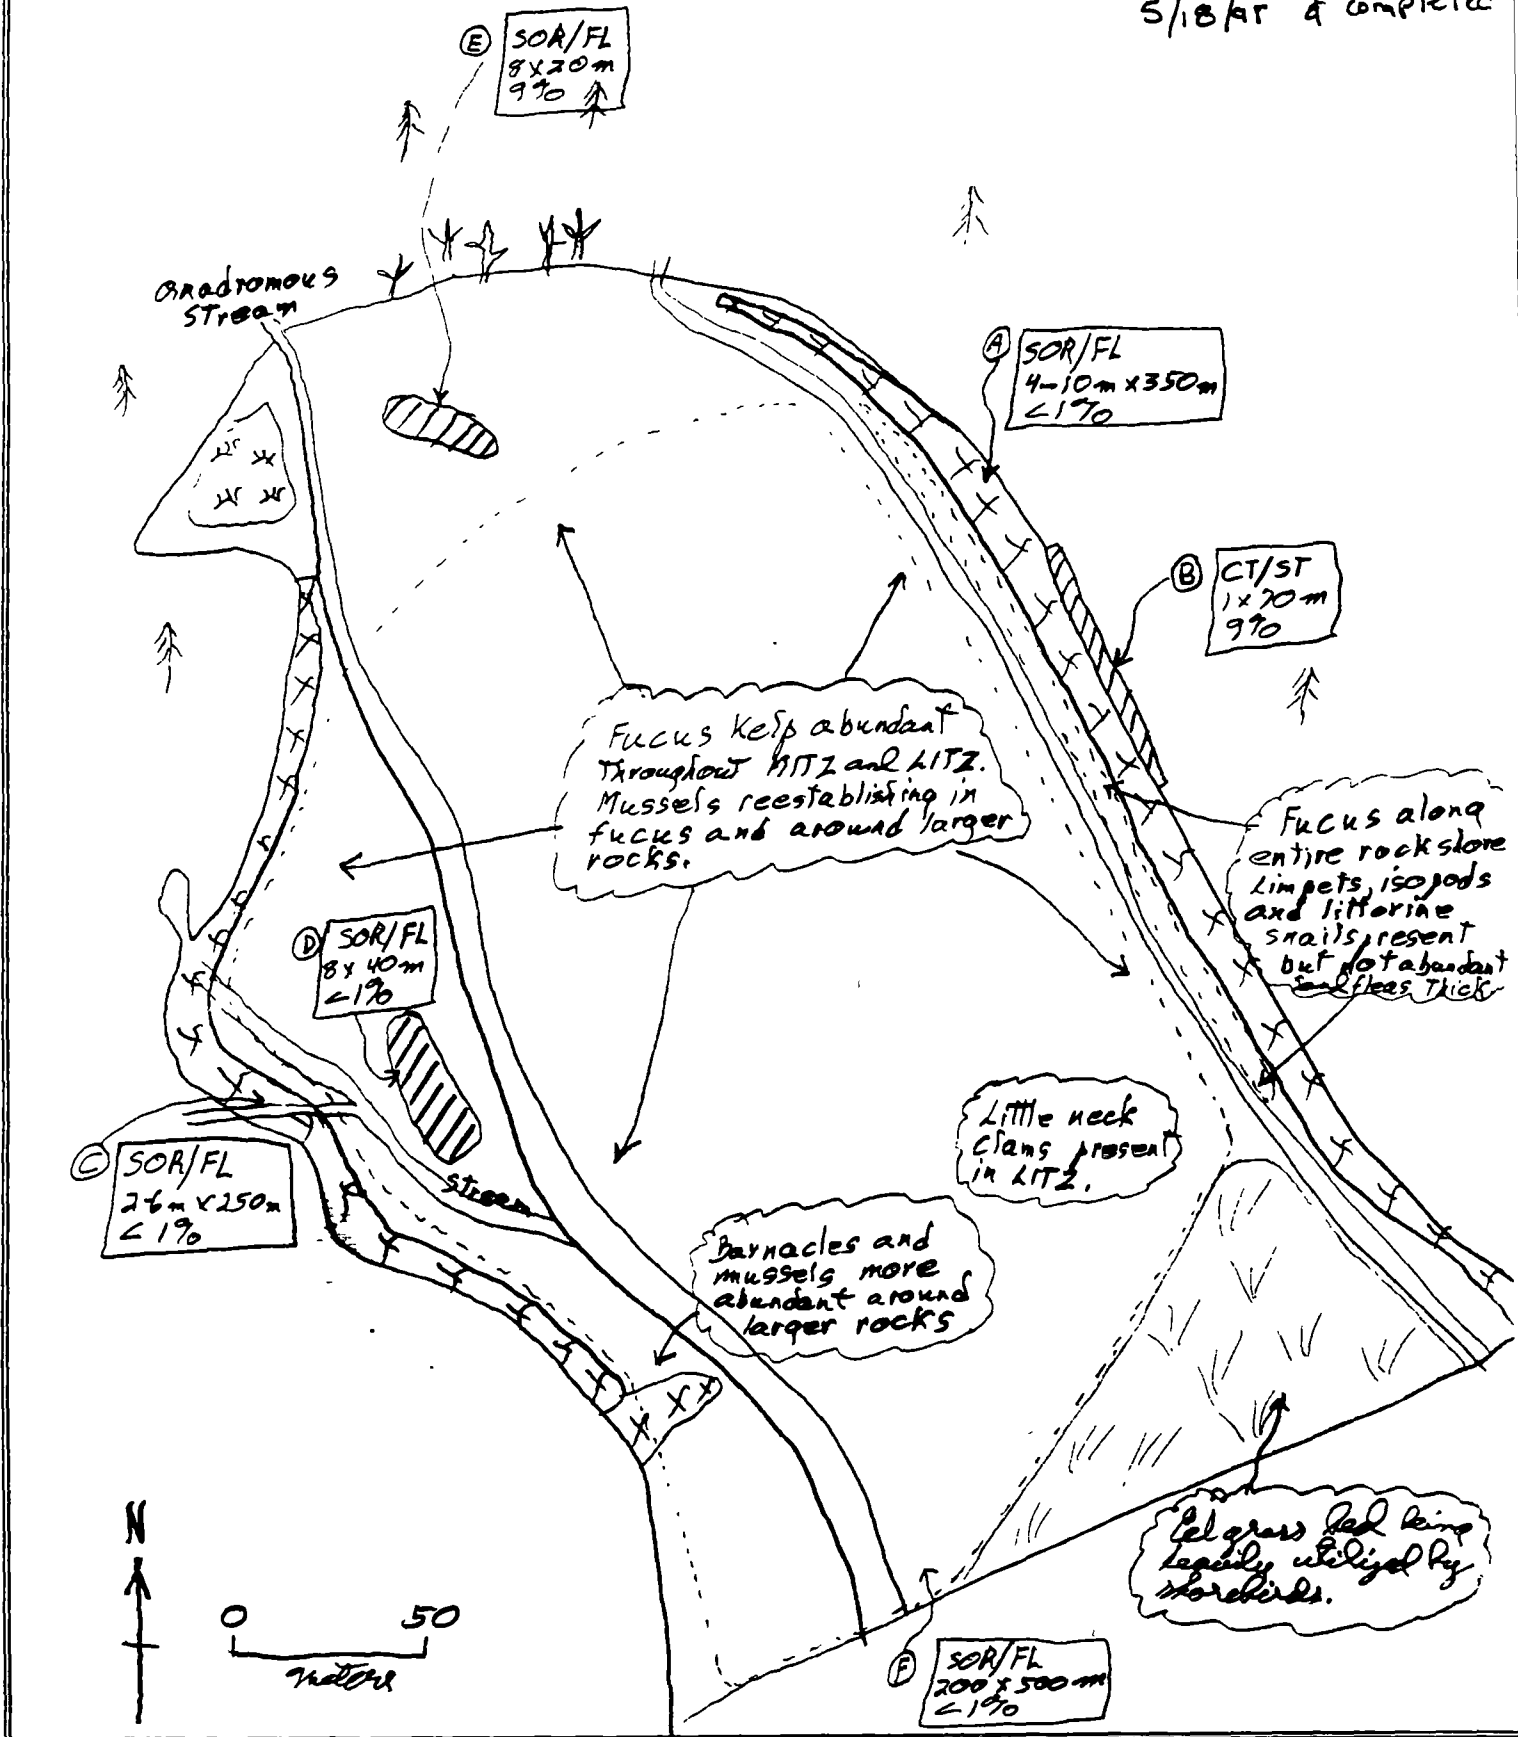 5/18/95 & completed
Ⓔ SOR/FL
8x20m
9%
anadromous
stream
Ⓐ SOR/FL
4-10m x 350m
<1%
Ⓑ CT/ST
1x70m
9%
Fucus Kelp abundant
Throughout MITZ and LITZ.
Mussels reestablishing in
fucus and around larger
rocks.
Fucus along
entire rock shore
Limpets, isopods
and littorine
snails present
but not abundant
Sandfleas Thick
Ⓓ SOR/FL
8x40m
<1%
Little neck
clams present
in LITZ.
Ⓒ SOR/FL
2-6m x 250m
<1%
stream
Barnacles and
mussels more
abundant around
larger rocks
Eel grass bed being
heavily utilized by
shorebirds.
N
0 50
meters
Ⓕ SOR/FL
200 x 500m
<1%